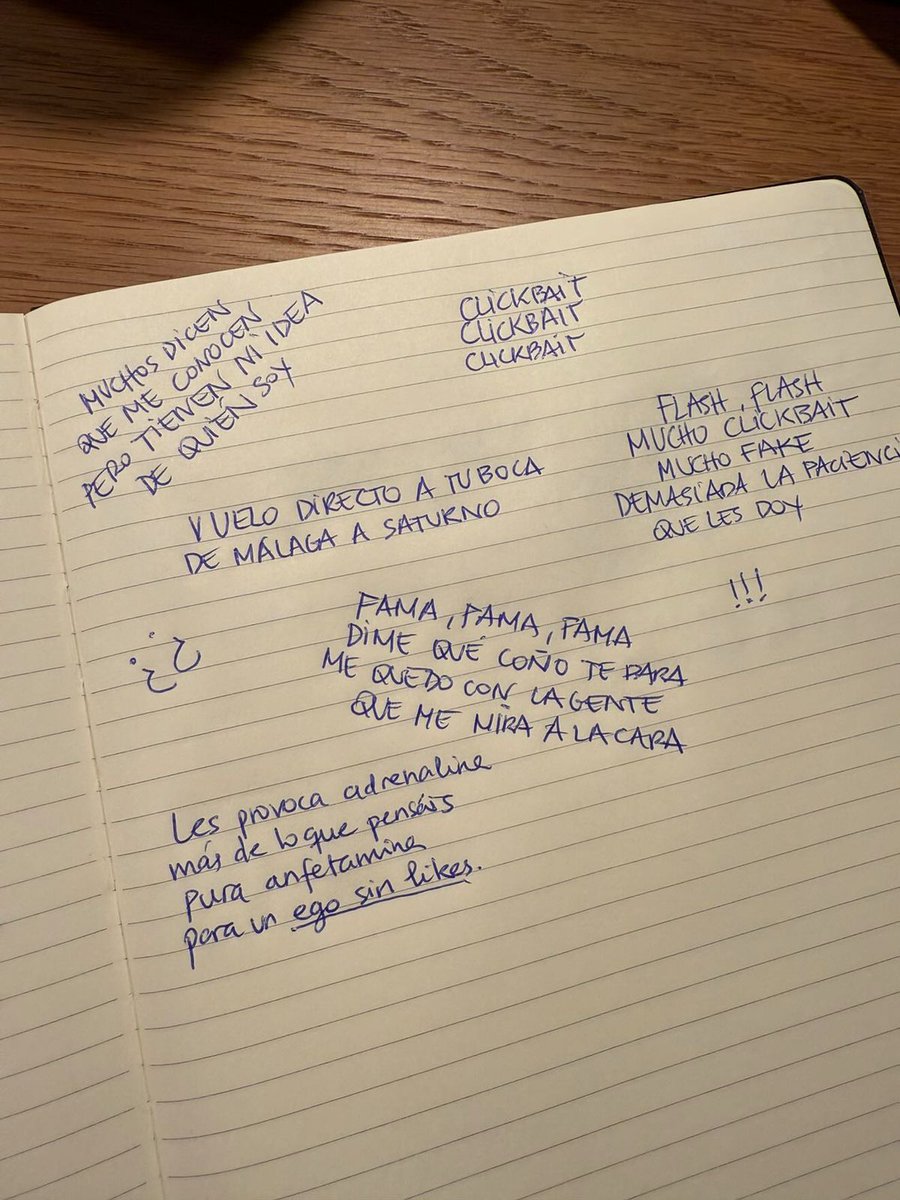 MUCHOS DICEN
QUE ME CONOCEN,
PERO TIENEN NI IDEA
DE QUIEN SOY
CLICKBAIT
CLICKBAIT
CLICKBAIT
FLASH, FLASH
MUCHO CLICKBAIT
MUCHO FAKE
DEMASIADA LA PACIENCI
QUE LES DOY
VUELO DIRECTO A TU BOCA
DE MÁLAGA A SATURNO
!!!
¿¿
FAMA, FAMA, FAMA
DIME QUÉ COÑO TE DARA
ME QUEDO CON LA GENTE
QUE ME MIRA A LA CARA
Les provoca adrenalina
más de lo que pensáis
pura anfetamina
para un ego sin likes.